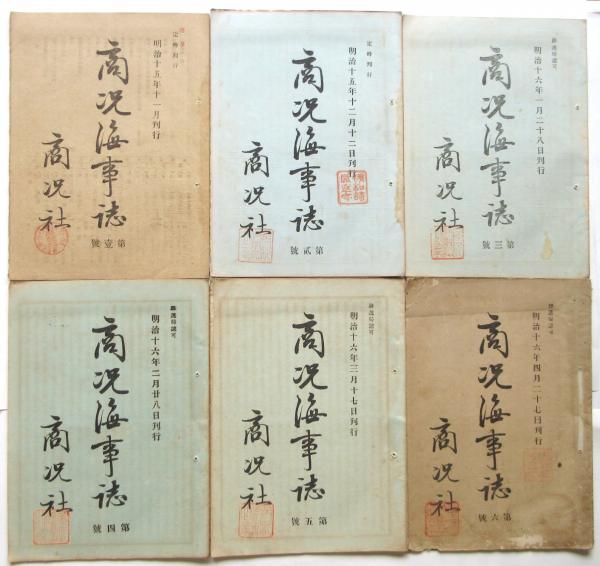 定時刊行
明治十五年十一月刊行
商况海事誌
商况社
第壹號
定時刊行
明治十五年十二月十二日刊行
商况海事誌
商况社
第貳號
驛遞局認可
明治十六年一月二十八日刊行
商况海事誌
商况社
第三號
驛遞局認可
明治十六年二月廿八日刊行
商况海事誌
商况社
第四號
驛遞局認可
明治十六年三月十七日刊行
商况海事誌
商况社
第五號
驛遞局認可
明治十六年四月二十七日刊行
商况海事誌
商况社
第六號